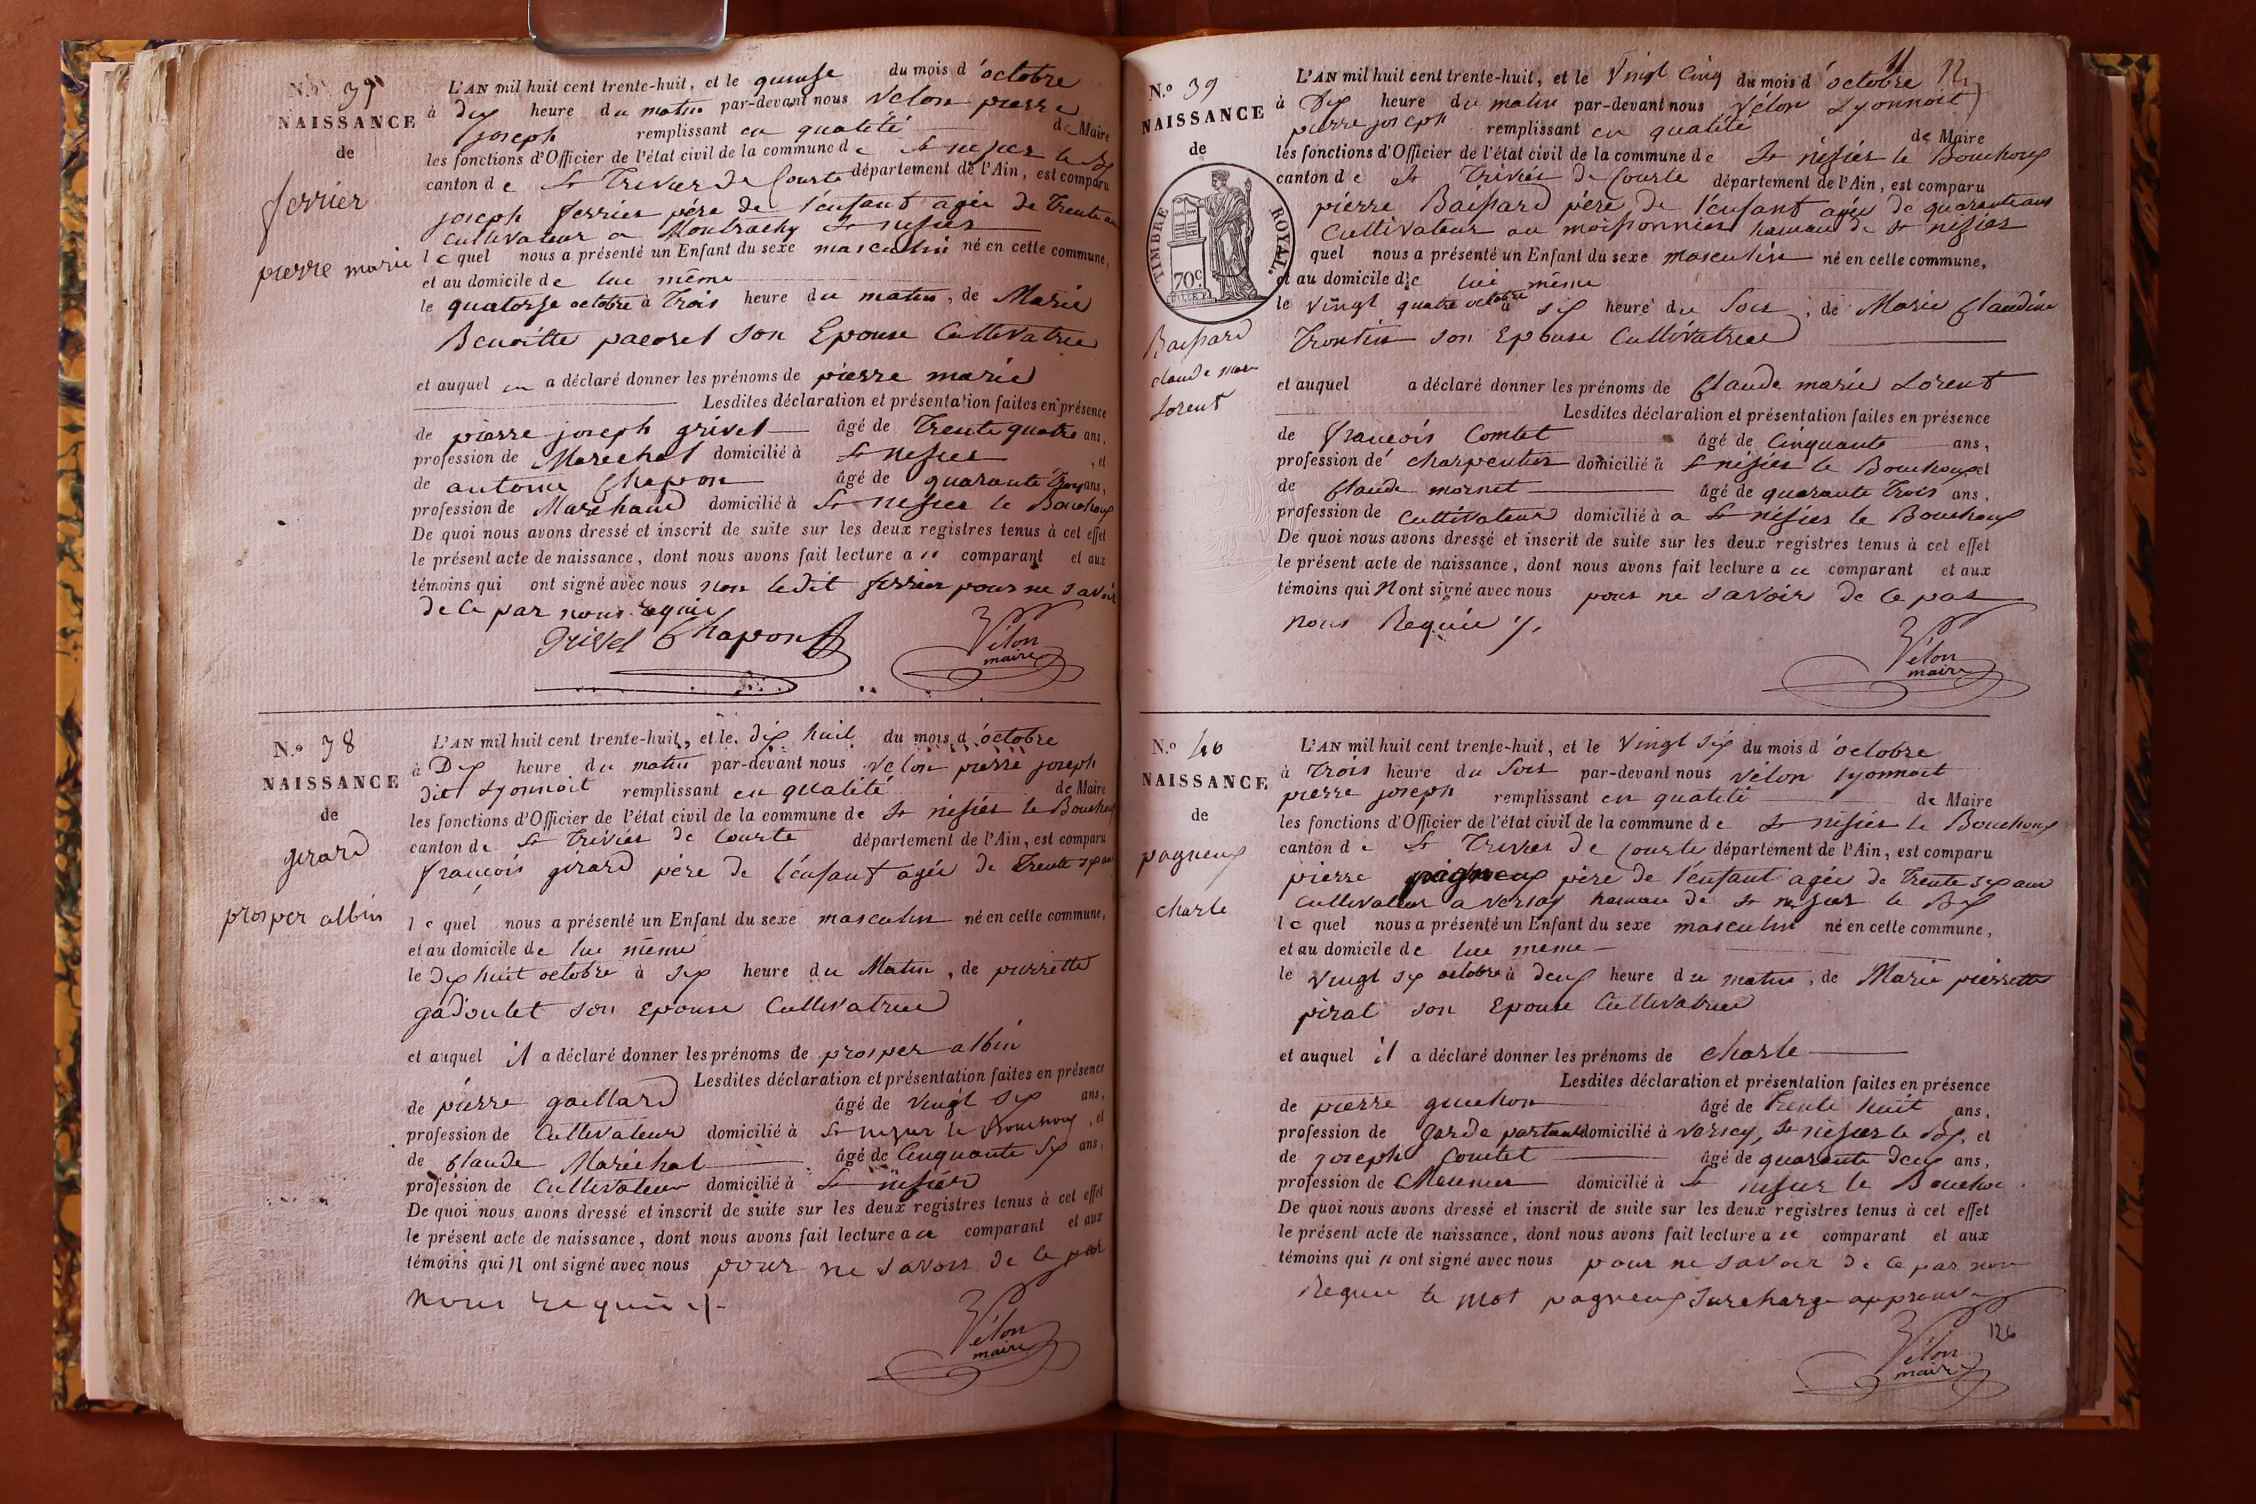 N.o 37
NAISSANCE
de
ferrier
pierre marie
L'AN mil huit cent trente-huit, et le quinse du mois d'octobre
à dix heure du matin par-devant nous vélon pierre
joseph remplissant en qualité de Maire
les fonctions d'Officier de l'état civil de la commune de St nisier le Bx
canton de St Trivier de Courte département de l'Ain, est comparu
joseph ferrier père de l'enfant agée de Trente ans
Cultivateur a Montrachy St nisier
le quel nous a présenté un Enfant du sexe masculin né en cette commune,
et au domicile de lui même
le quatorse octobre à Trois heure du matin, de Marie
Benoitte pacoret son Epouse Cultivatrice
et auquel a déclaré donner les prénoms de pierre marie
Lesdites déclaration et présentation faites en présence
de pierre joseph grivel âgé de Trente quatre ans,
profession de Marechal domicilié à St nisier, et
de antoine Chapon âgé de quarante Trois ans,
profession de Marchand domicilié à St nisier le Bouchoux
De quoi nous avons dressé et inscrit de suite sur les deux registres tenus à cet effet
le présent acte de naissance, dont nous avons fait lecture a ce comparant et aux
témoins qui ont signé avec nous non ledit ferrier pour ne savoir
de ce par nous requie
Grivel Chapon
Vélon
maire
N.o 38
NAISSANCE
de
girard
prosper albin
L'AN mil huit cent trente-huit, et le dix huit du mois d'octobre
à Dix heure du matin par-devant nous vélon pierre joseph
dit Lyonnoit remplissant en qualité de Maire
les fonctions d'Officier de l'état civil de la commune de St nisier le Bouchoux
canton de St Trivier de Courte département de l'Ain, est comparu
françois girard père de l'énfant agée de Trente six ans
le quel nous a présenté un Enfant du sexe masculin né en cette commune,
et au domicile de lui même
le dix huit octobre à six heure du Matin, de pierrette
gadoulet son Epouse Cultivatrice
et auquel il a déclaré donner les prénoms de prosper albin
Lesdites déclaration et présentation faites en présence
de pierre gaillard âgé de vingt six ans,
profession de Cultivateur domicilié à St nizier le Bouchoux, et
de Claude Maréchal âgé de Cinquante Six ans,
profession de Cultivateur domicilié à St nisier
De quoi nous avons dressé et inscrit de suite sur les deux registres tenus à cet effet
le présent acte de naissance, dont nous avons fait lecture a ce comparant et aux
témoins qui n ont signé avec nous pour ne savoir de ce par
nous requie
Vélon
maire
N.o 39
NAISSANCE
de
TIMBRE ROYAL.
70c
Baissard
claude marie
Lorent
L'AN mil huit cent trente-huit, et le Vingt Cinq du mois d'octobre
à Dix heure du matin par-devant nous Vélon Lyonnoit
pierre joseph remplissant en qualité de Maire
les fonctions d'Officier de l'état civil de la commune de St nisier le Bouchoux
canton de St Trivier de Courte département de l'Ain, est comparu
pierre Baissard père de l'énfant agée de quarante ans
Cultivateur au moissonnier hameau de St nisier
quel nous a présenté un Enfant du sexe masculin né en cette commune,
et au domicile de lui même
le vingt quatre octobre à six heure du Soir, de Marie Claudine
Trontin son Epouse Cultivatrice
et auquel a déclaré donner les prénoms de Claude marie Lorent
Lesdites déclaration et présentation faites en présence
de françois Comtet âgé de Cinquante ans,
profession de charpentier domicilié à St nisier le Bouchoux et
de Claude mornet âgé de quarante Trois ans,
profession de Cultivateur domicilié à a St nisier le Bouchoux
De quoi nous avons dressé et inscrit de suite sur les deux registres tenus à cet effet
le présent acte de naissance, dont nous avons fait lecture a ce comparant et aux
témoins qui N ont signé avec nous pour ne savoir de ce par
nous Requie
Vélon
maire
N.o 40
NAISSANCE
de
pagneux
charle
L'AN mil huit cent trente-huit, et le Vingt six du mois d'octobre
à Trois heure du Soir par-devant nous vélon Lyonnoit
pierre joseph remplissant en qualité de Maire
les fonctions d'Officier de l'état civil de la commune de St nisier le Bouchoux
canton de St Trivier de Courte département de l'Ain, est comparu
pierre pagneux père de l'énfant agée de Trente six ans
Cultivateur a versey hameau de St nisier le Bx
le quel nous a présenté un Enfant du sexe masculin né en cette commune,
et au domicile de lui meme
le vingt six octobre à deux heure du matin, de Marie pierrette
pirat son Epouse Cultivatrice
et auquel il a déclaré donner les prénoms de charle
Lesdites déclaration et présentation faites en présence
de pierre guichon âgé de Trente huit ans,
profession de garde domicilié à versey, St nisier le Bx, et
de joseph Comtet âgé de quarante deux ans,
profession de Meunier domicilié à St nisier le Bouchou
De quoi nous avons dressé et inscrit de suite sur les deux registres tenus à cet effet
le présent acte de naissance, dont nous avons fait lecture a ce comparant et aux
témoins qui n ont signé avec nous pour ne savoir de ce par nou
Requie le mot pagneux Surcharge approuvé
126
Vélon
maire